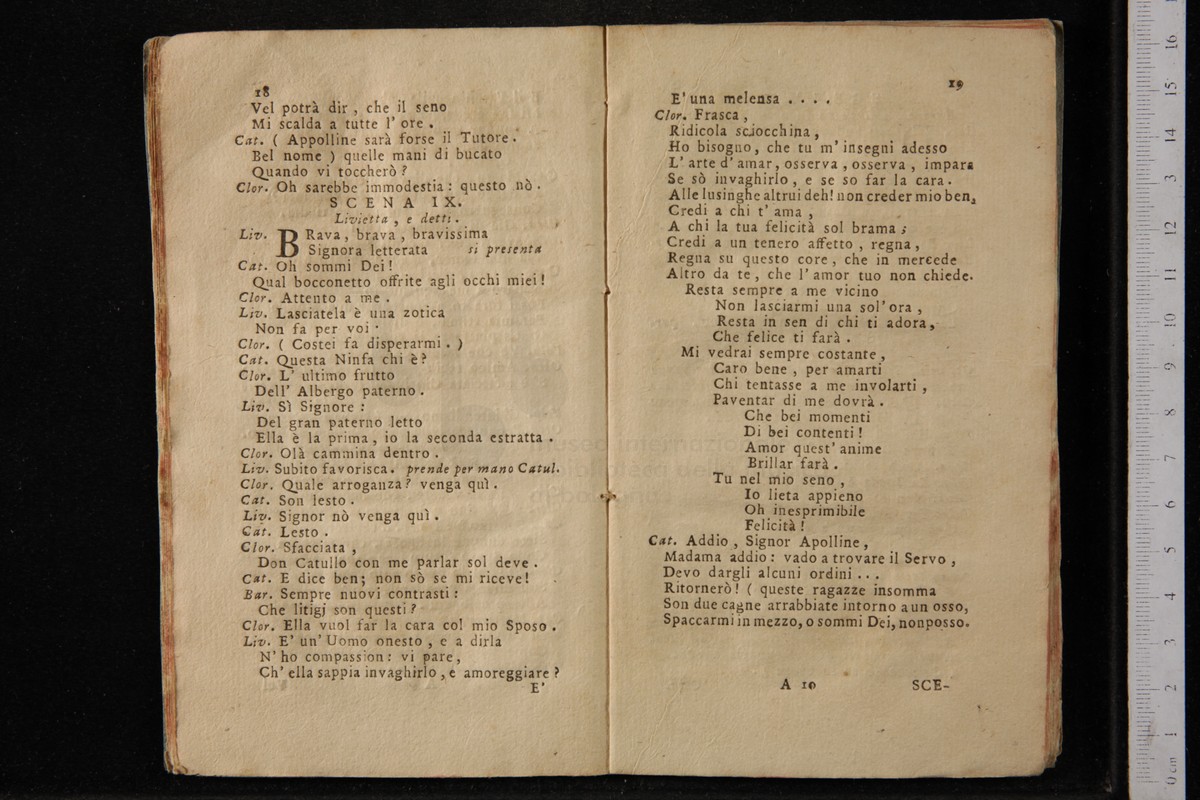 18
Vel potrà dir , che il seno
Mi scalda a tutte l' ore .
Cat. ( Appolline sarà forse il Tutore .
Bel nome ) quelle mani di bucato
Quando vi toccherò ?
Clor. Oh sarebbe immodestia : questo nò .
SCENA IX.
Livietta , e detti .
Liv. BRava , brava , bravissima
Signora letterata si presenta
Cat. Oh sommi Dei !
Qual bocconetto offrite agli occhi miei !
Clor. Attento a me .
Liv. Lasciatela è una zotica
Non fa per voi .
Clor. ( Costei fa disperarmi . )
Cat. Questa Ninfa chi è ?
Clor. L' ultimo frutto
Dell' Albergo paterno .
Liv. Sì Signore :
Del gran paterno letto
Ella è la prima , io la seconda estratta .
Clor. Olà cammina dentro .
Liv. Subito favorisca . prende per mano Catul.
Clor. Quale arroganza ? venga quì .
Cat. Son lesto .
Liv. Signor nò venga quì .
Cat. Lesto .
Clor. Sfacciata ,
Don Catullo con me parlar sol deve .
Cat. E dice ben ; non sò se mi riceve !
Bar. Sempre nuovi contrasti :
Che litigj son questi ?
Clor. Ella vuol far la cara col mio Sposo .
Liv. E' un' Uomo onesto , e a dirla
N' ho compassion : vi pare ,
Ch' ella sappia invaghirlo , e amoreggiare ?
E'
19
E' una melensa . . . .
Clor. Frasca ,
Ridicola sciocchina ,
Ho bisogno , che tu m' insegni adesso
L' arte d' amar , osserva , osserva , impara
Se sò invaghirlo , e se so far la cara .
Alle lusinghe altrui deh! non creder mio ben,
Credi a chi t' ama ,
A chi la tua felicità sol brama ;
Credi a un tenero affetto , regna ,
Regna su questo core , che in mercede
Altro da te , che l' amor tuo non chiede.
Resta sempre a me vicino
Non lasciarmi una sol' ora ,
Resta in sen di chi ti adora ,
Che felice ti farà .
Mi vedrai sempre costante ,
Caro bene , per amarti
Chi tentasse a me involarti ,
Paventar di me dovrà .
Che bei momenti
Di bei contenti !
Amor quest' anime
Brillar farà .
Tu nel mio seno ,
Io lieta appieno
Oh inesprimibile
Felicità !
Cat. Addio , Signor Apolline ,
Madama addio : vado a trovare il Servo ,
Devo dargli alcuni ordini . . .
Ritornerò ! ( queste ragazze insomma
Son due cagne arrabbiate intorno a un osso,
Spaccarmi in mezzo, o sommi Dei, non posso.
A 10 SCE-